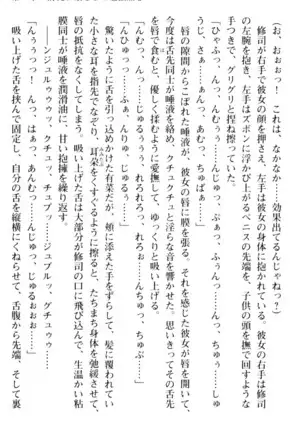 （お、おぉぉっ！　これは、なかなか……効果出てるんじゃねっ？）
　修司が右手で彼女の顔を押さえ、左手は彼女の身体に抱かれている。彼女の右手は修司
の左腕を抱き、左手はズボンに浮かび上がるペニスの先端を、子供の頭を撫で回すような
手つきで、グリグリと捏ね擦っていた。
「ひゃふっ、んっ、むぅっ……んじゅっ、ぷぁっ、ふぅんっ……んっ、ちゅぅ……しゅ
うじ、さぁ……んっ、あむっ、ちゅぱぁ……」
　唇の隙間からこぼれた唾液が、彼女の唇に膜を張る。それを感じた彼女が唇を開いて、
今度は舌先同士が唾液を絡め、クチュクチュと淫らな音を響かせた。思いきってその舌先
を唇で食むと、彼女の舌を愛撫して、ゆっくりと吸い上げる。
「んひゅっっ……ふぁっ、んりゅっ、じゅるっ……れろれろれろっ、れろぉ……んちゅっ、
んちゅっ、ちゅぶ……」
　驚いたように舌を引っ込めかけた有菜だが、頬に添えた手をずらして、髪に覆われてい
た小さな耳を指先でなぞり、耳朶をくすぐるように擦ると、たちまち身体を弛緩させて、
唇の抵抗をなくしてしまう。吸い上げた舌は大部分が修司の口に飛び込んで、生温かい粘
膜同士が唾液を潤滑油に、甘い抱擁を繰り返す。
――ンジュルゥゥゥッ、クチュッ、チュッ……ジュプルッ、グチュゥゥ……
「んぅぅっっ！　んっ、はぁっ、あむっっ……んじゅっ、じゅるぉぉぉ……」
　吸い上げた舌を挟んで固定し、自分の舌を縦横にくねらせて、舌腹から先端、そして裏